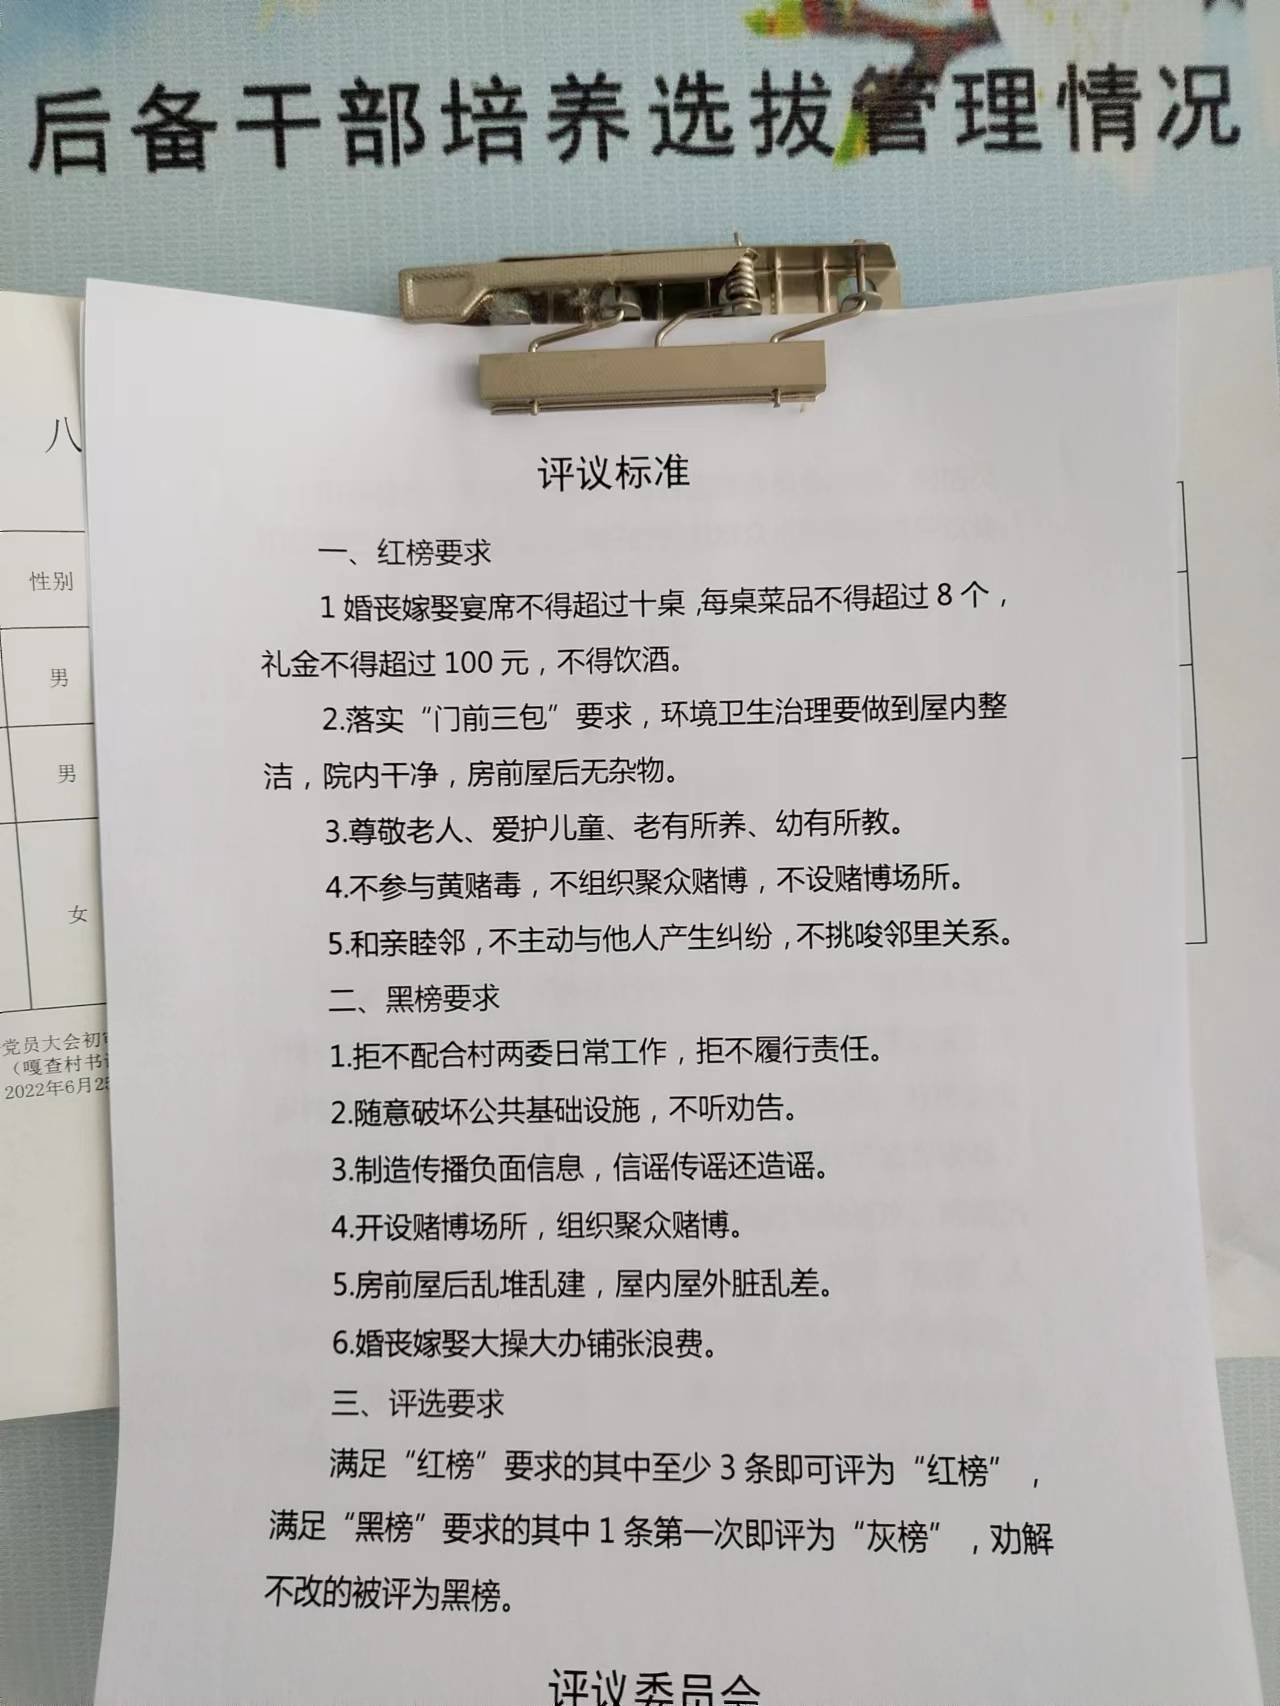 后备干部培养选拔管理情况
评议标准
一、红榜要求
1 婚丧嫁娶宴席不得超过十桌,每桌菜品不得超过 8 个，
礼金不得超过 100 元，不得饮酒。
2.落实“门前三包”要求，环境卫生治理要做到屋内整
洁，院内干净，房前屋后无杂物。
3.尊敬老人、爱护儿童、老有所养、幼有所教。
4.不参与黄赌毒，不组织聚众赌博，不设赌博场所。
5.和亲睦邻,不主动与他人产生纠纷,不挑唆邻里关系。
二、黑榜要求
1.拒不配合村两委日常工作，拒不履行责任。
2.随意破坏公共基础设施，不听劝告。
3.制造传播负面信息，信谣传谣还造谣。
4.开设赌博场所，组织聚众赌博。
5.房前屋后乱堆乱建，屋内屋外脏乱差。
6.婚丧嫁娶大操大办铺张浪费。
三、评选要求
满足“红榜”要求的其中至少 3 条即可评为“红榜”，
满足“黑榜”要求的其中 1 条第一次即评为“灰榜”，劝解
不改的被评为黑榜。
评议委员会
八
性别
男
男
女
党员大会初
（嘎查村书
2022年6月25